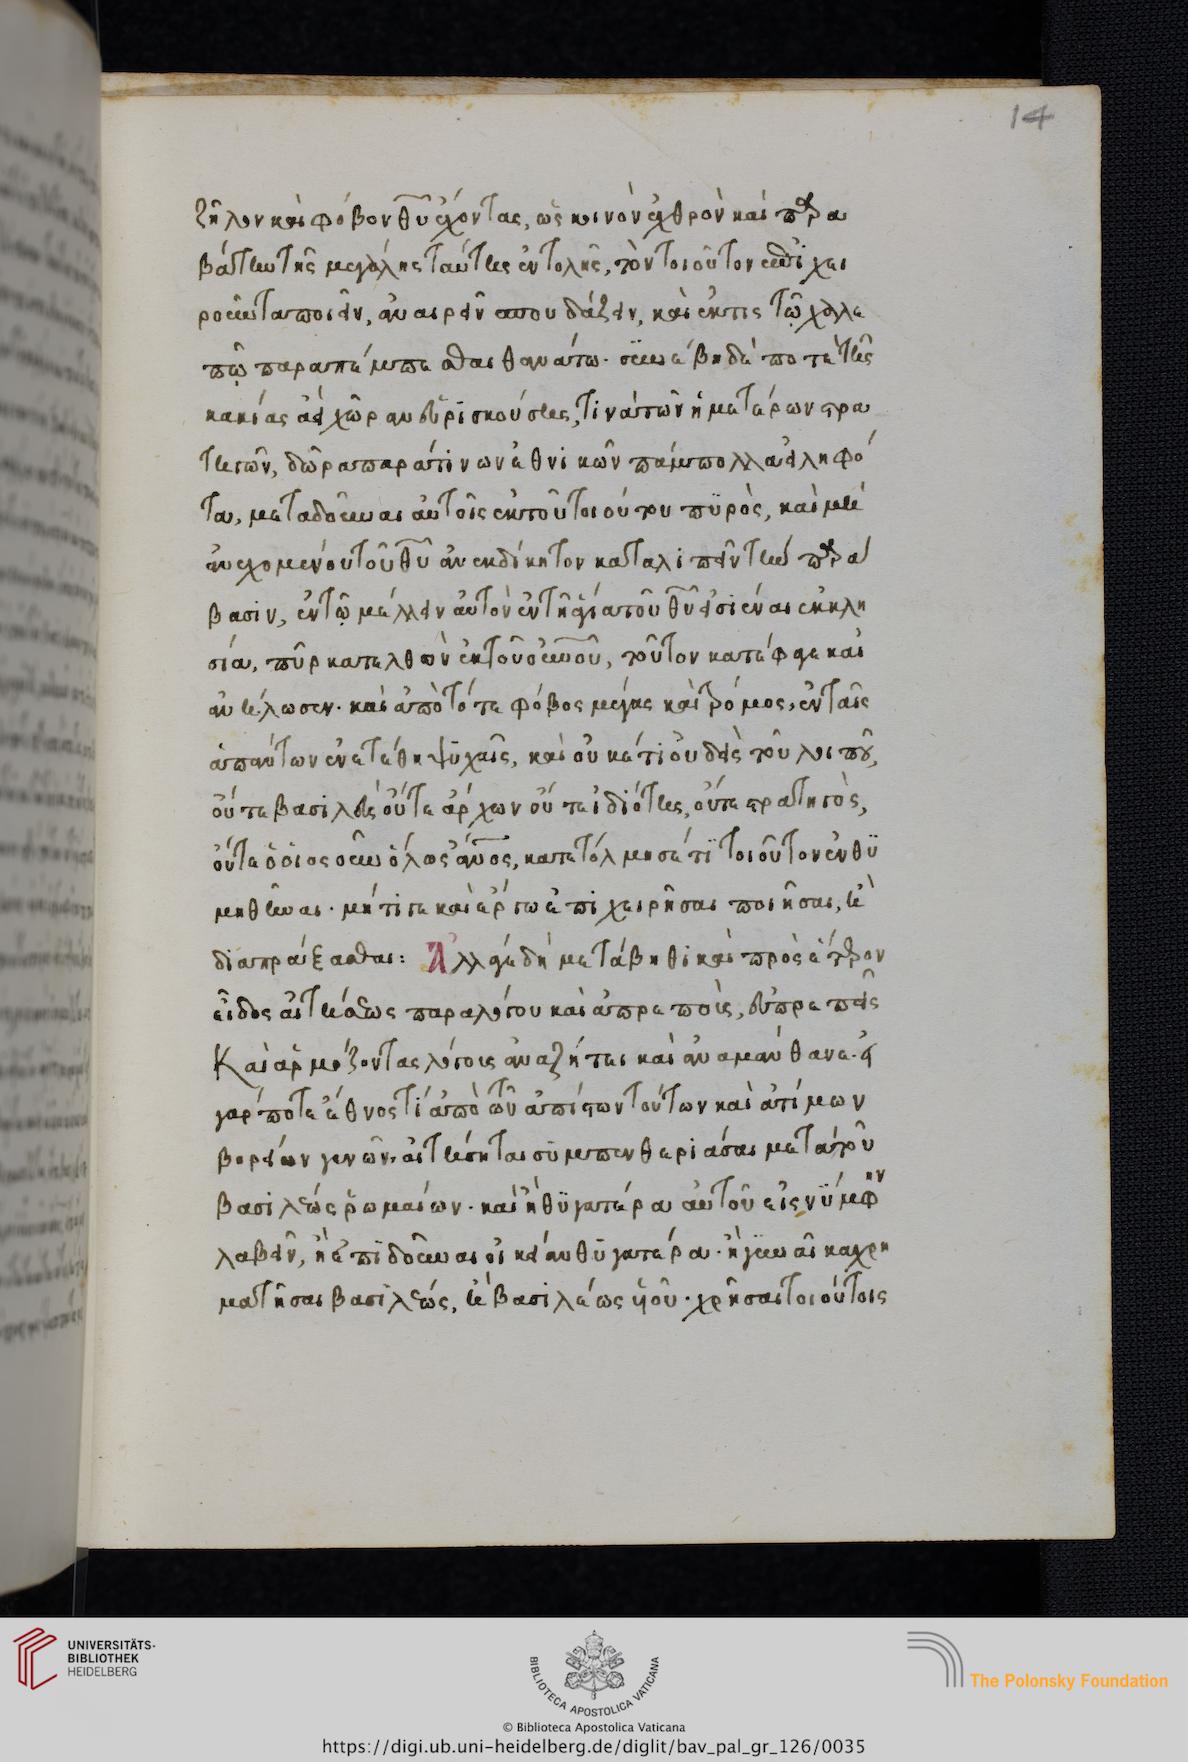 14
ζῆλον καὶ φόβον θυ ἔχοντας, ὡς κοινὸν ἐχθρὸν καὶ παρα
βάτην τῆς μεγάλης ταύτης ἐντολῆς, τὸν τοιοῦτον ἐπιχει
ροῦντα ποιεῖν, ἀναιρεῖν σπουδάζειν, καὶ ἐκτὶς τῷ χαλε
πῷ παραπέμπεσθαι θανάτω. συνέβη δέ ποτέ τῆς
κακίας ἀεὶ χῶραν εὑρισκούσης, τινά τῶν ἡμετέρων στρα
τηγῶν, δῶρα παρά τινων ἐθνικῶν πάμπολλα εἰληφό
τα, μεταδοῦναι αὐτοῖς ἐκ τοῦ τοιούτου πυρὸς, καὶ μή
ἀνεχομένου τοῦ θυ ἀνεκδίκητον καταλιπεῖν τήν παρά
βασιν, ἐν τῷ μέλλειν αὐτὸν ἐν τῆ ἁγία τοῦ θυ εἰσιέναι ἐκκλη
σία, πῦρ κατελθὼν ἐκ τοῦ οὐνοῦ, τοῦτον κατέφαγε καὶ
ἀνήλωσεν. καὶ ἀπὸ τότε φόβος μέγας καὶ τρόμος, ἐν ταῖς
ἁπάντων ἐνετέθη ψυχαῖς, καὶ οὐκέτι οὐδεὶς τοῦ λοιποῦ,
οὔτε βασιλεὺς οὔτε ἄρχων οὔτε ἰδιότης, οὔτε στρατηγὸς,
οὔτε ὁ οἷος οὖν ὅλως ἄνος, κατετόλμησέ τι τοιοῦτον ἐνθυ
μηθῆναι. μήτιγε καὶ ἔργω ἐπιχειρῆσαι ποιῆσαι, ἢ
διαπράξασθαι: Ἀλλ' ἄγε δή μετάβηθι καὶ πρὸς ἕτερον
εἶδος αἰτήσεως παραλόγου καὶ ἀπρεποὺς, εὐπρεπεῖς
Καὶ ἁρμόζοντας λόγους ἀναζήτει καὶ ἀναμάνθανε. εἰ
γάρ ποτε ἔθνος τί ἀπὸ τῶν ἀπίστων τούτων καὶ ἀτίμων
βορείων γενῶν, αἰτήσηται συμπενθεριάσαι μετά τοῦ
βασιλέως ρωμαίων. καὶ ἢ θυγατέρα αὐτοῦ εἰς νύμφην
λαβεῖν, ἢ ἐπιδοῦναι οἰκείαν θυγατέρα. ἢ γυναῖκα χρη
ματῆσαι βασιλέως, ἢ βασιλέως υἱοῦ. χρῆσαι τοιούτοις
UNIVERSITÄTS-
BIBLIOTHEK
HEIDELBERG
BIBLIOTECA APOSTOLICA VATICANA
© Biblioteca Apostolica Vaticana
https://digi.ub.uni-heidelberg.de/diglit/bav_pal_gr_126/0035
The Polonsky Foundation